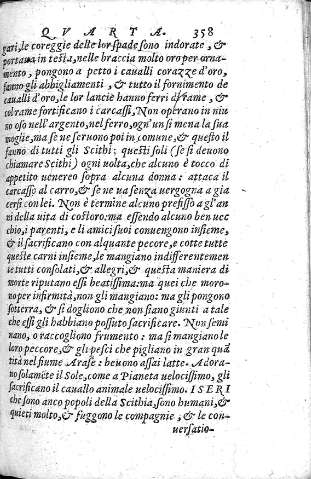 QVARTA. 358
gari, le coreggie delle lor spade sono indorate, &
portano in testa, nelle braccia molto oro per orna-
mento, pongono a petto i caualli corazze d'oro,
fanno gli abbigliamenti, & tutto il fornimento de
caualli d'oro, le lor lancie hanno ferri di rame, &
col rame fortificano i carcassi, Non operano in niu
no oso nell'argento, nel ferro, ogn'un si mena la sua
moglie, ma se ne seruono poi in comune, & questo il
fanno di tutti gli Scithi: questi soli (se si deuono
chiamare Scithi) ogni uolta, che alcuno è tocco di
appetito uenereo sopra alcuna donna: attaca il
carcasso al carro, & se ne ua senza uergogna a gia
cersi con lei. Non è termine alcuno prefisso a gl'an
ni della uita di costoro: ma essendo alcuno ben uec
chio, i parenti, e li amici suoi conuengono insieme,
& il sacrificano con alquante pecore, e cotte tutte
queste carni insieme, le mangiano indifferentemen
te tutti consolati, & allegri, & questa maniera di
morte riputano essi beatissima: ma quei che moro-
no per infirmità, non gli mangiano: ma gli pongono
sotterra, & si dogliono che non siano giunti a tale
che essi gli habbiano possuto sacrificare. Non semi
nano, o raccogliono frumento: ma si mangiano le
loro peccore, & gli pesci che pigliano in gran quã
tità nel fiume Arase: beuono assai latte. Adora-
no solamẽte il Sole, come a Pianeta uelocissimo, gli
sacrificano il cauallo animale uelocissimo. I SERI
che sono anco popoli della Scithia, sono humani, &
quieti molto, & fuggono le compagnie, & le con-
uersatio-